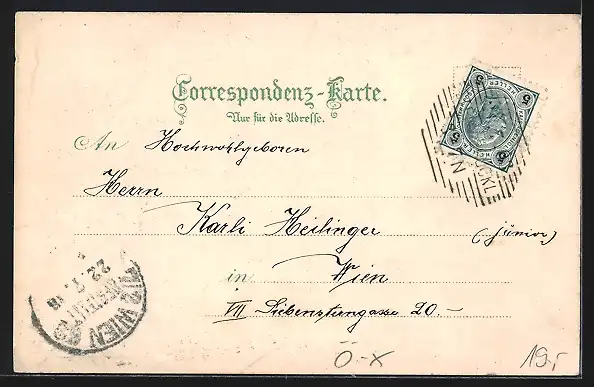 Correspondenz-Karte.
Nur für die Adresse.
An Hochwohlgeboren
Herrn
Karli Heilinger (junior)
in Wien
VII Siebensterngasse 20.-
5 5
5 5
WIEN
22. 7.
Ö-X
19,-